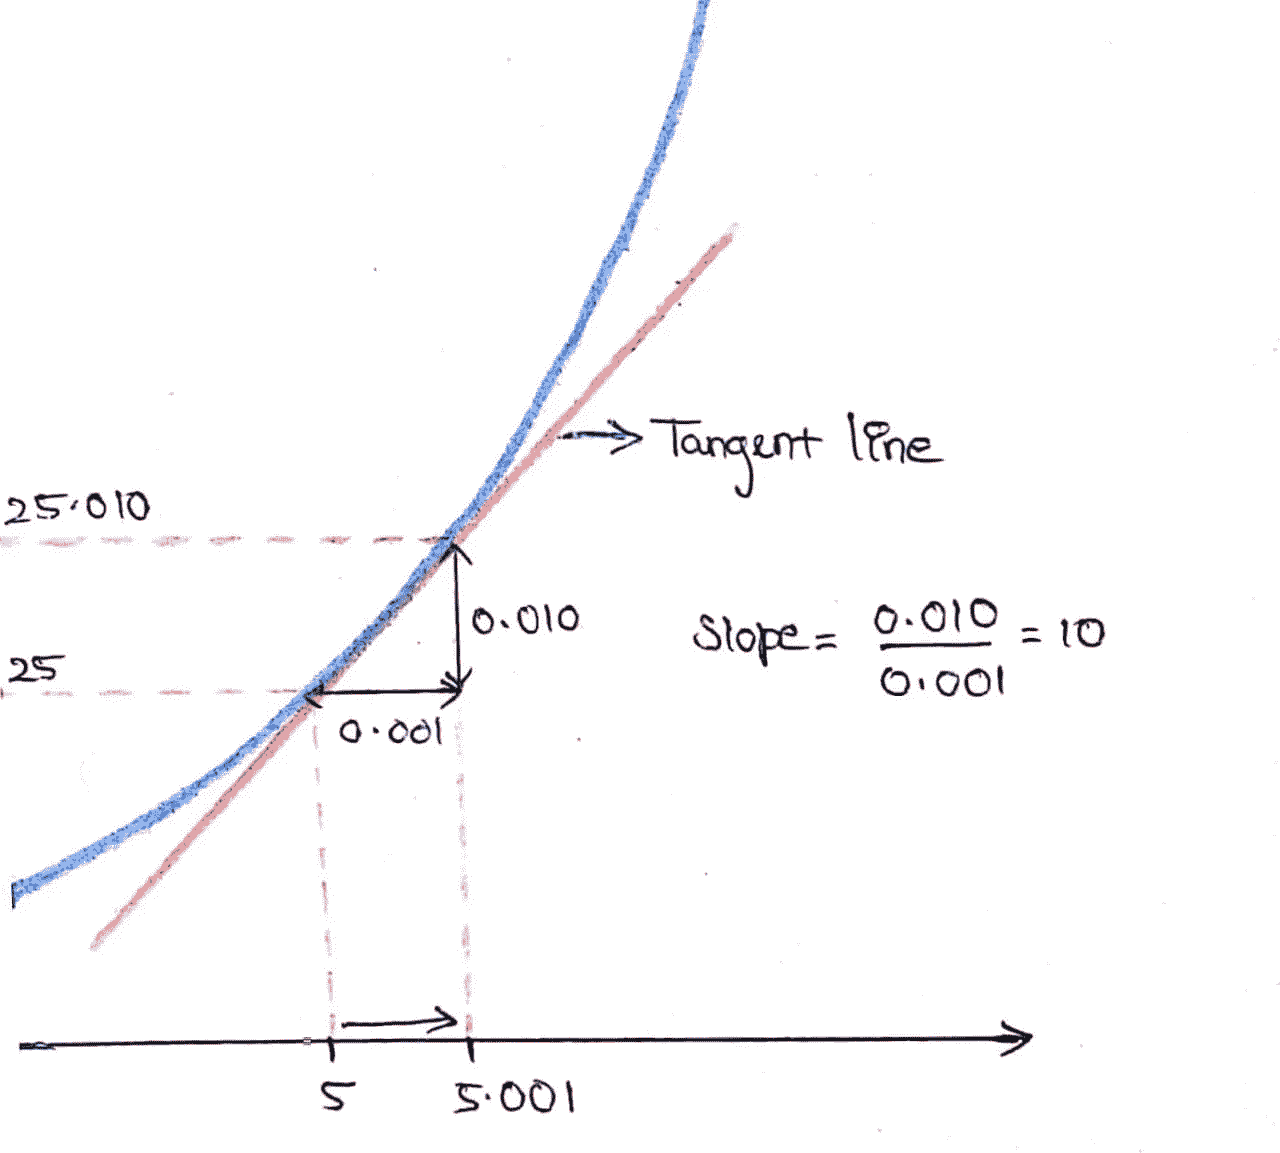 Tangent line
25.010
0.010
Slope = 0.010 / 0.001 = 10
25
0.001
5
5.001